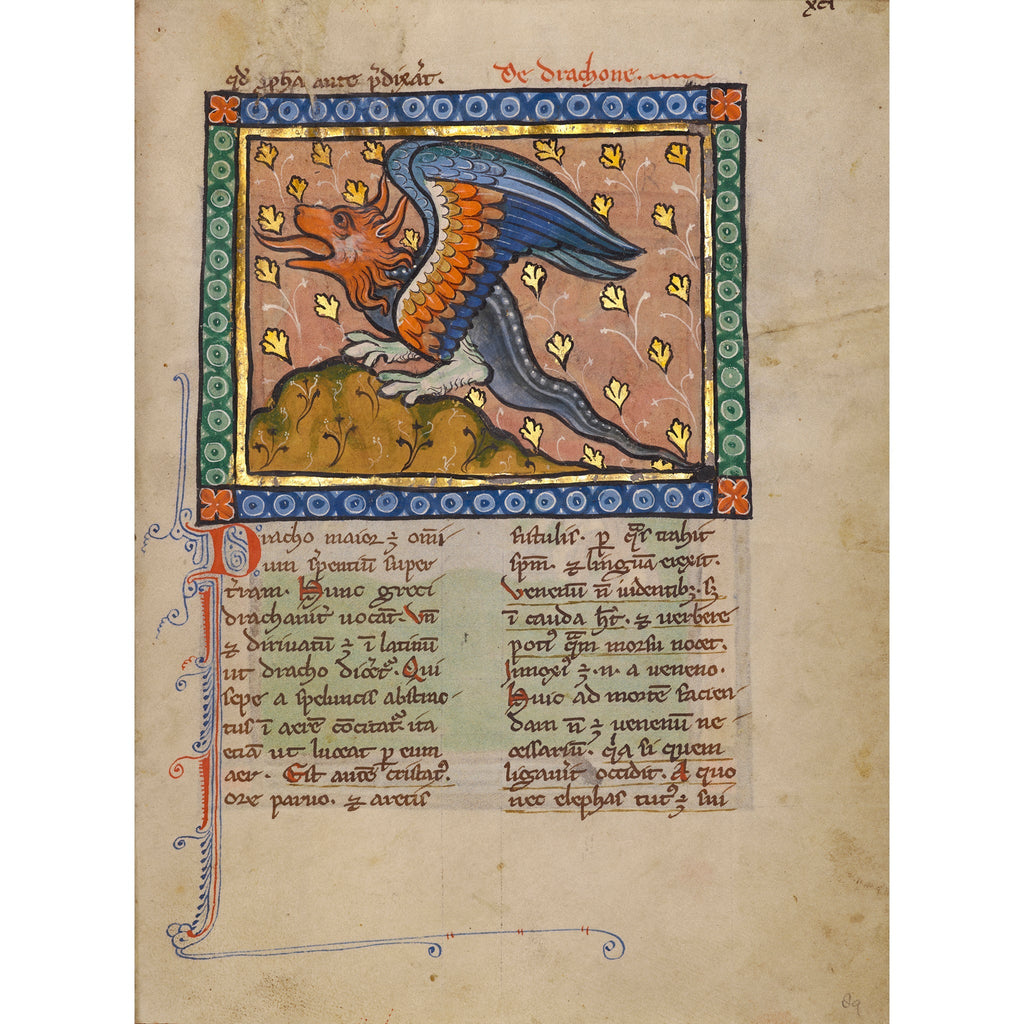 xci
qd̄ ꝓph̄a ante p̄dixat̄.
De drachone.
Dracho maior ⁊ om̄i
um s̄pentiū super
t̄ram. Hunc greci
drachanit̄ uocāt. Vn̄
⁊ diriuatū ⁊ ī latinū
ut dracho dic̄et᷑. Qui
sepe a speluncis abstrac
tus ī aerē cōcitat᷑ ita
etiā ut luceat ꝑ eum
aer. Est autē cristat᷒.
ore paruo. ⁊ artis
fistulis. ꝑ q̄s trahit
sp̄m. ⁊ linguā exit.
Venenū n̄ identib⁊. s⁊
ī cauda h̄t. ⁊ uerbere
poti᷒ q̄m morsu nocet.
Innoxi᷒ ⁊ .n. a ueneno.
Huic ad mortē facien
dam n̄ ⁊ uenenū ne
cessariū. q̄a si quem
ligauit̄ occidit. A quo
nec elephas tut᷒ ⁊ sui
89